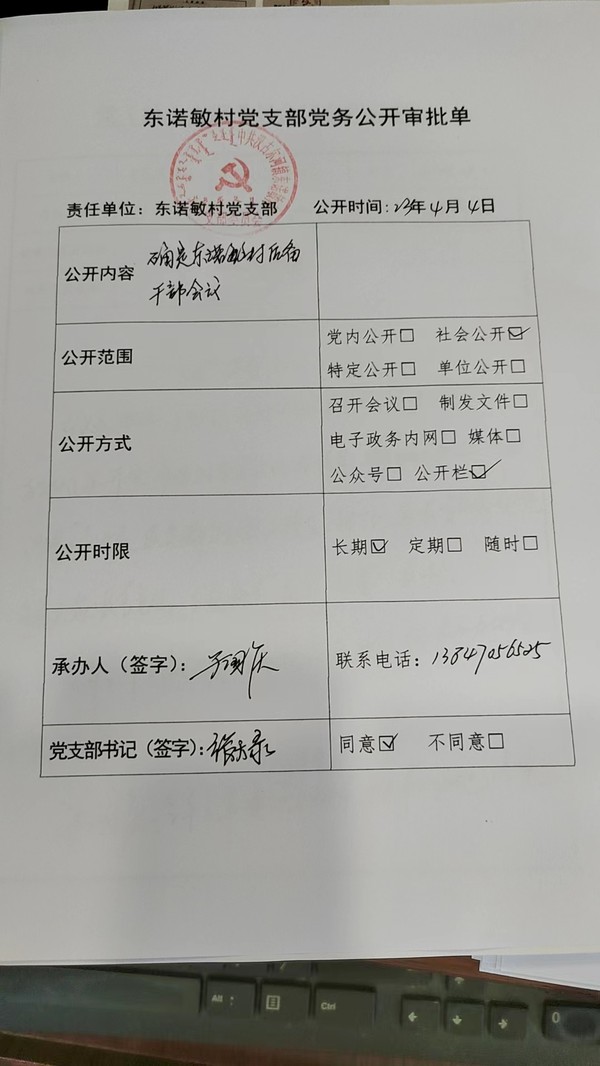 东诺敏村党支部党务公开审批单
责任单位：东诺敏村党支部 公开时间：23年4月4日
公开内容 确定东诺敏村后备
干部会议
公开范围 党内公开□ 社会公开☑
特定公开□ 单位公开□
公开方式 召开会议□ 制发文件□
电子政务内网□ 媒体□
公众号□ 公开栏☑
公开时限 长期☑ 定期□ 随时□
承办人（签字）： 联系电话：13847056525
党支部书记（签字）： 同意☑ 不同意□
Alt
Ctrl
0